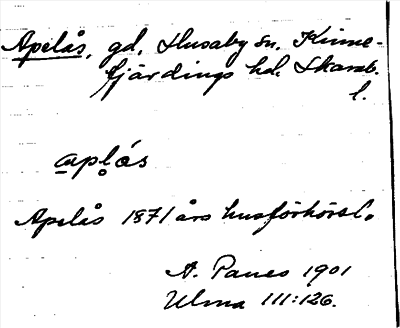 Apelås, gd, Husaby sn, Kinne-
fjärdings hd, Skarab.
l.
ap̥lås
Apelås 1871 års husförhörsl.
A. Palles 1901
Ulma 111:126.